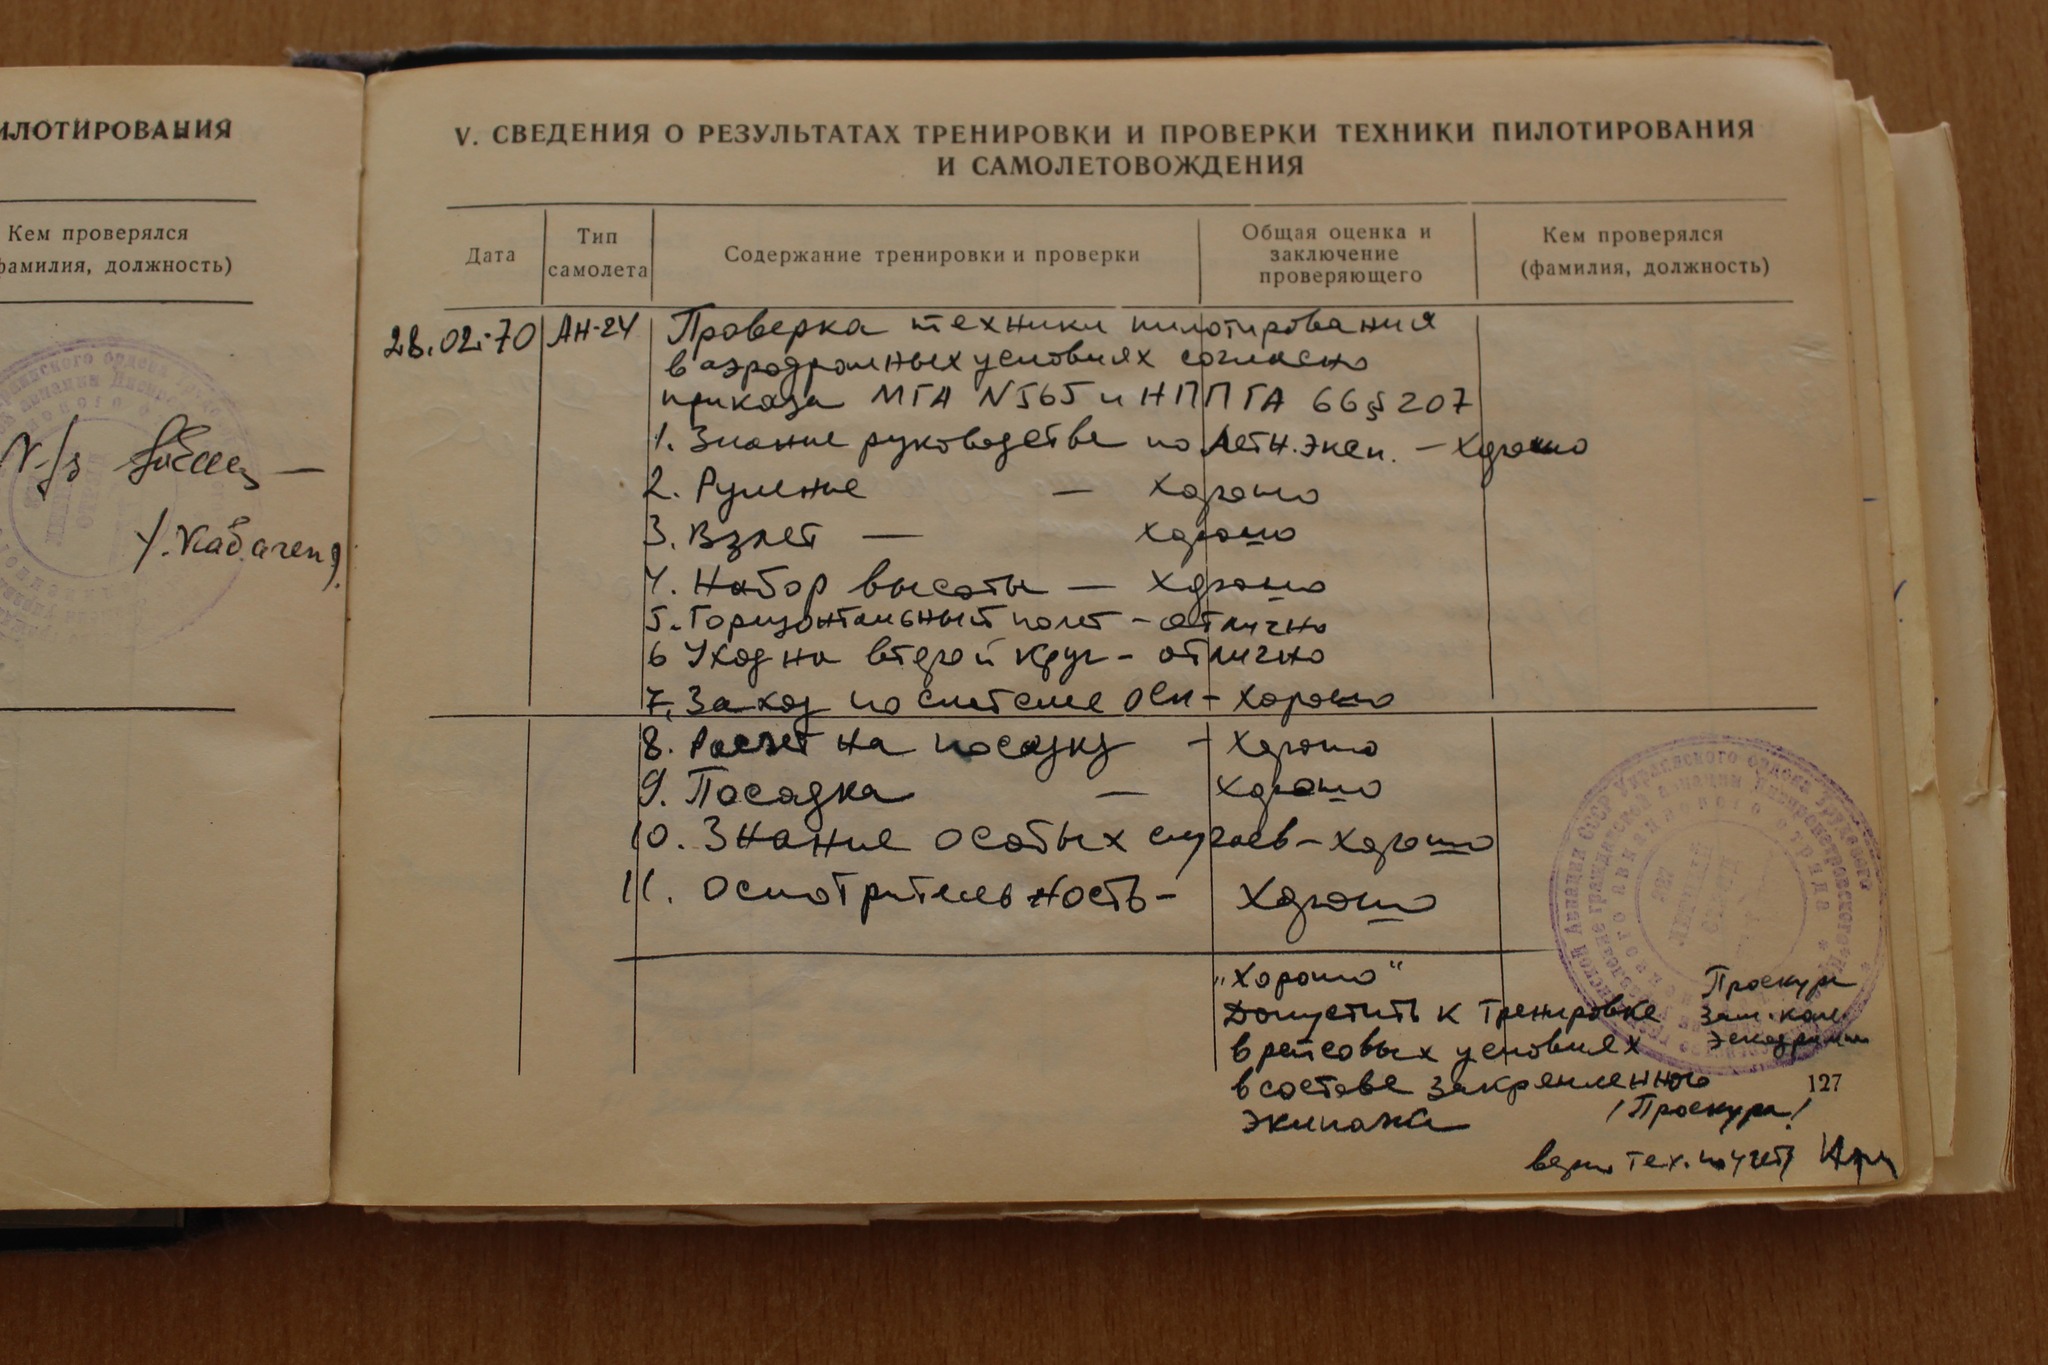 ИЛОТИРОВАНИЯ
Кем проверялся
фамилия, должность)
V. СВЕДЕНИЯ О РЕЗУЛЬТАТАХ ТРЕНИРОВКИ И ПРОВЕРКИ ТЕХНИКИ ПИЛОТИРОВАНИЯ
И САМОЛЕТОВОЖДЕНИЯ
Дата
Тип
самолета
Содержание тренировки и проверки
Общая оценка и
заключение
проверяющего
Кем проверялся
(фамилия, должность)
28.02.70 АН-24 Проверка техники пилотирования
в аэродромных условиях согласно
приказа МГА N565 и НППГА 66 § 207
1. Знание руководства по летн. эксп. - хорошо
2. Руление - хорошо
3. Взлет - хорошо
4. Набор высоты - хорошо
5. Горизонтальный полет - отлично
6 Уход на второй круг - отлично
7. Заход по системе ОСП - хорошо
8. Расчет на посадку - хорошо
9. Посадка - хорошо
10. Знание особых случаев - хорошо
11. Осмотрительность - хорошо
"Хорошо"
Допустить к тренировке
в рейсовых условиях
в составе закрепленного
экипажа
Проскура
зам. ком.
эскадрильи
127
/Проскура/
тех. по учету